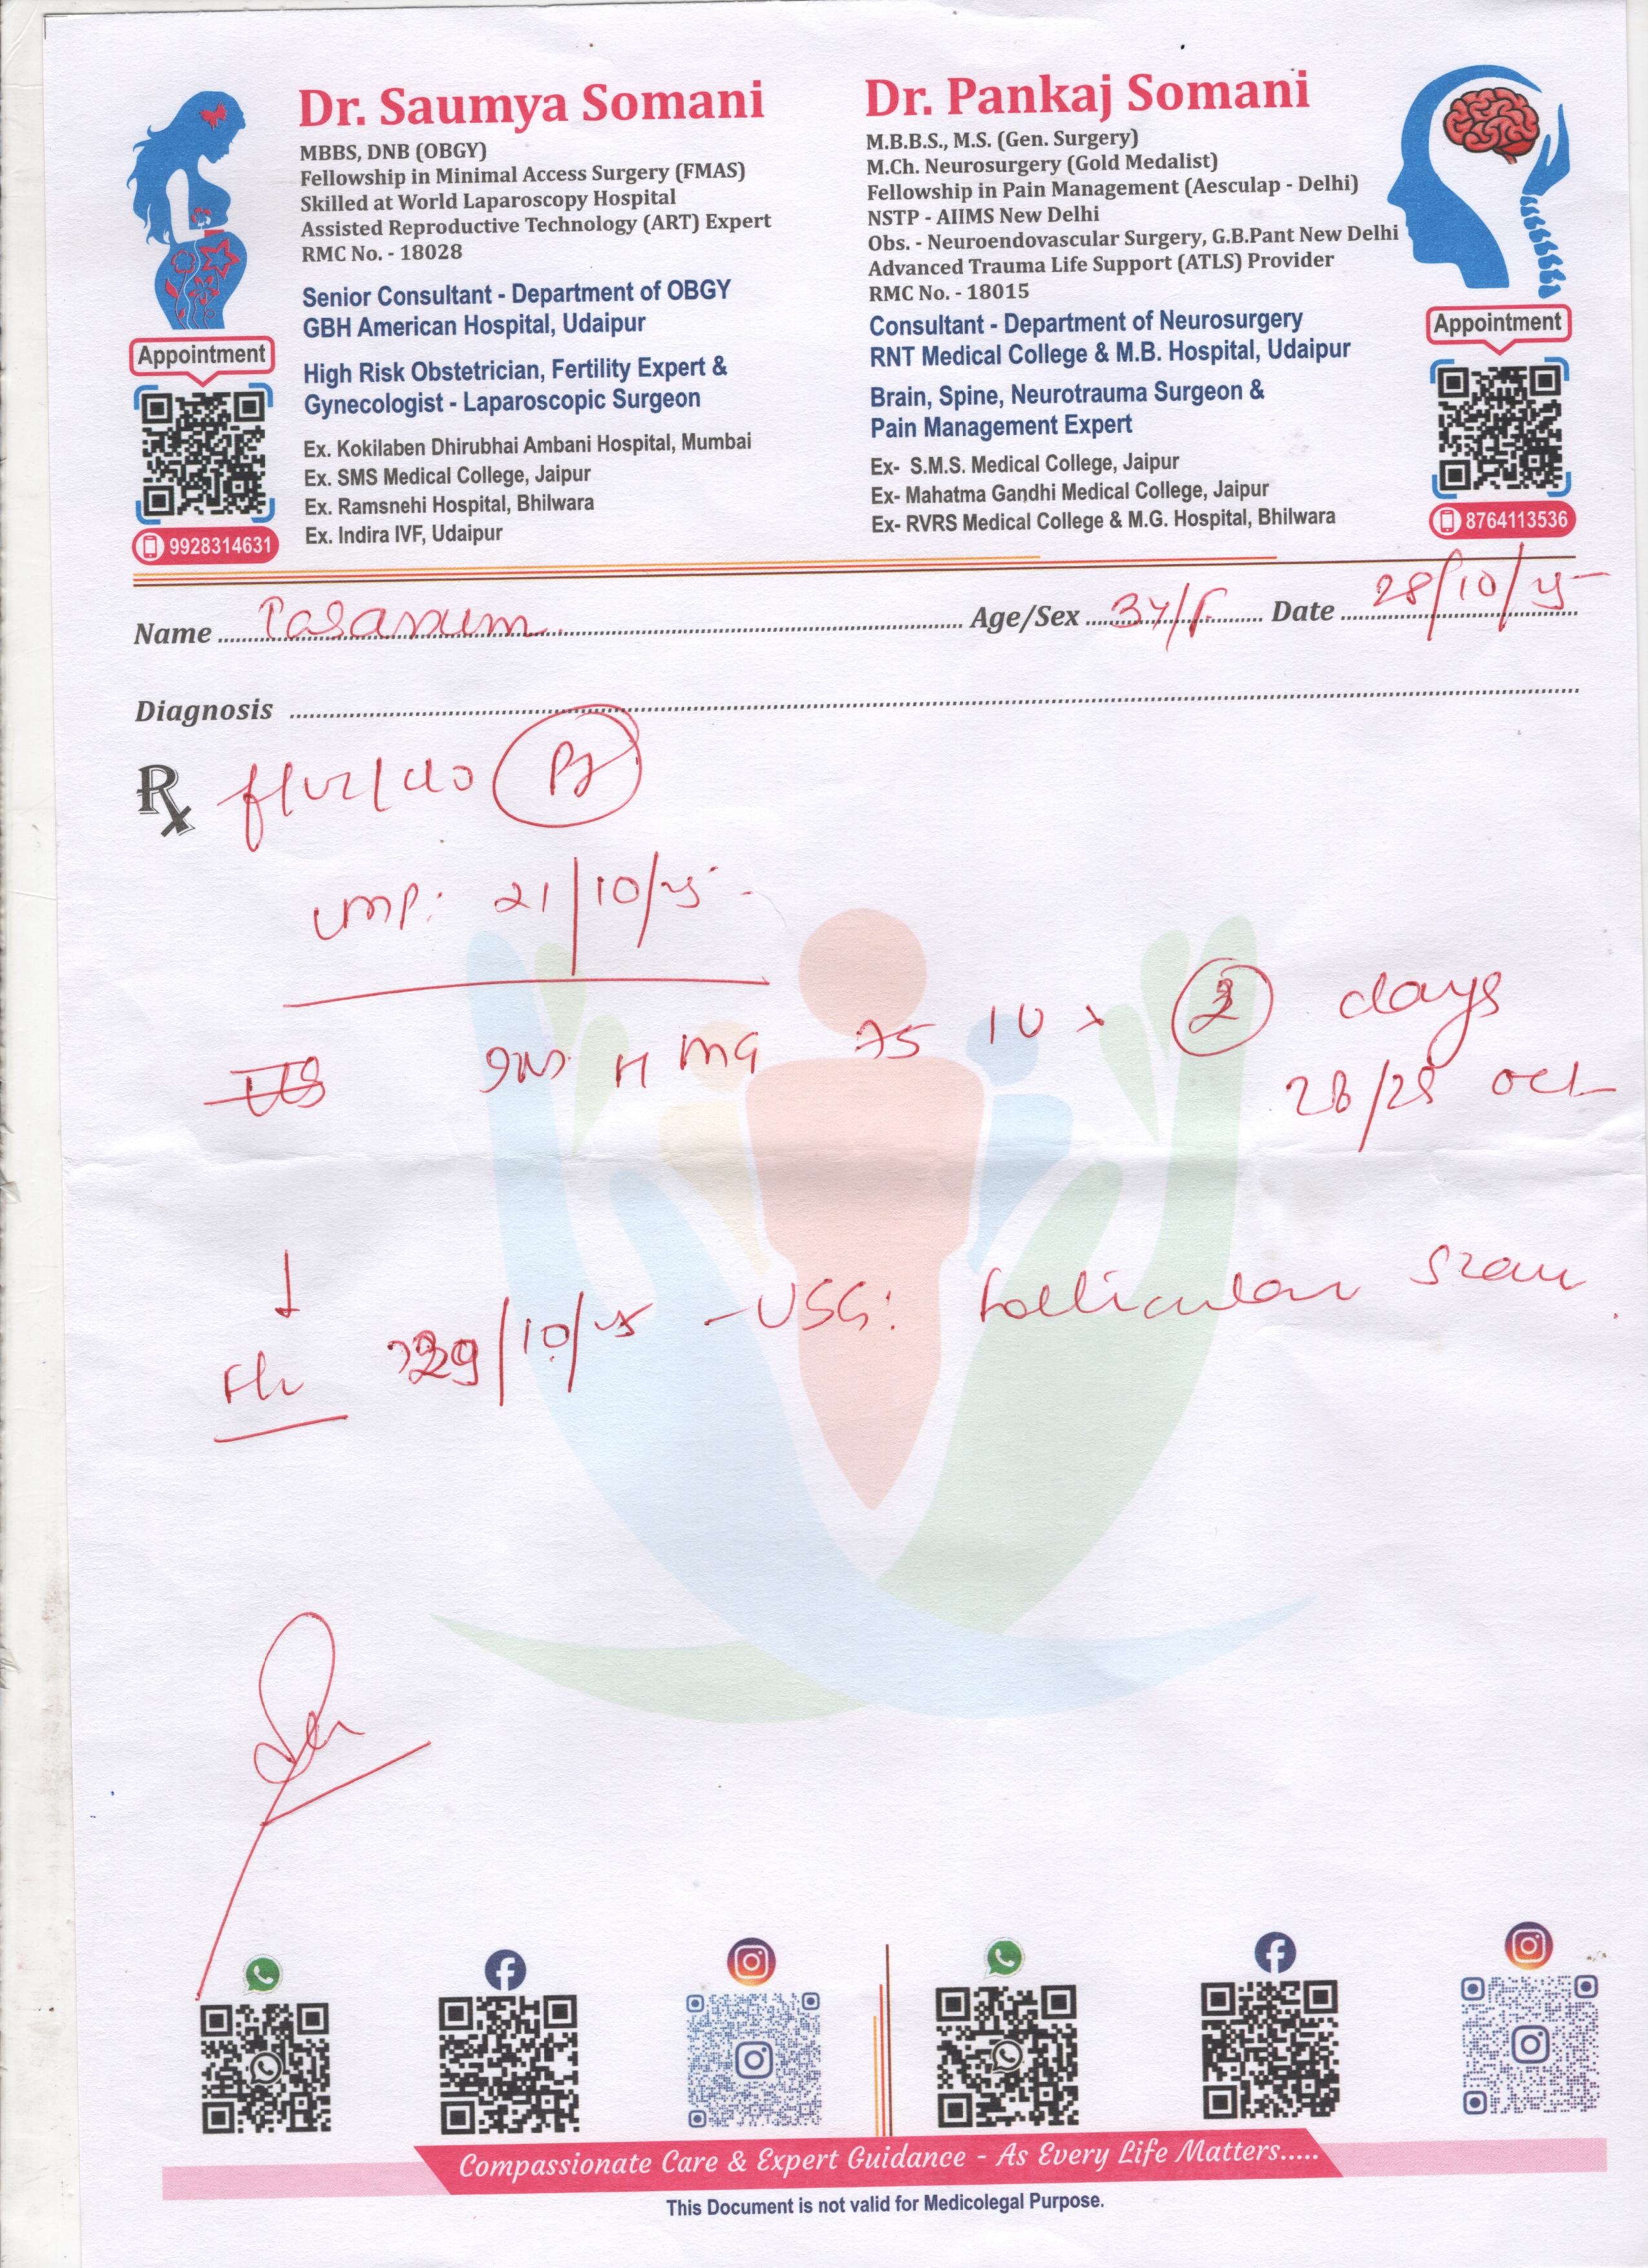 Dr. Saumya Somani
MBBS, DNB (OBGY)
Fellowship in Minimal Access Surgery (FMAS)
Skilled at World Laparoscopy Hospital
Assisted Reproductive Technology (ART) Expert
RMC No. - 18028
Senior Consultant - Department of OBGY
GBH American Hospital, Udaipur
High Risk Obstetrician, Fertility Expert &
Gynecologist - Laparoscopic Surgeon
Ex. Kokilaben Dhirubhai Ambani Hospital, Mumbai
Ex. SMS Medical College, Jaipur
Ex. Ramsnehi Hospital, Bhilwara
Ex. Indira IVF, Udaipur
Appointment
9928314631
Dr. Pankaj Somani
M.B.B.S., M.S. (Gen. Surgery)
M.Ch. Neurosurgery (Gold Medalist)
Fellowship in Pain Management (Aesculap - Delhi)
NSTP - AIIMS New Delhi
Obs. - Neuroendovascular Surgery, G.B.Pant New Delhi
Advanced Trauma Life Support (ATLS) Provider
RMC No. - 18015
Consultant - Department of Neurosurgery
RNT Medical College & M.B. Hospital, Udaipur
Brain, Spine, Neurotrauma Surgeon &
Pain Management Expert
Ex- S.M.S. Medical College, Jaipur
Ex- Mahatma Gandhi Medical College, Jaipur
Ex- RVRS Medical College & M.G. Hospital, Bhilwara
Appointment
8764113536
Name Age/Sex Date 28/10/25
Diagnosis
Rx
LMP: 21/10/25
HMG 75 IU x days
28/29 oct
29/10/25 - USG: follicular scan
Compassionate Care & Expert Guidance - As Every Life Matters.....
This Document is not valid for Medicolegal Purpose.